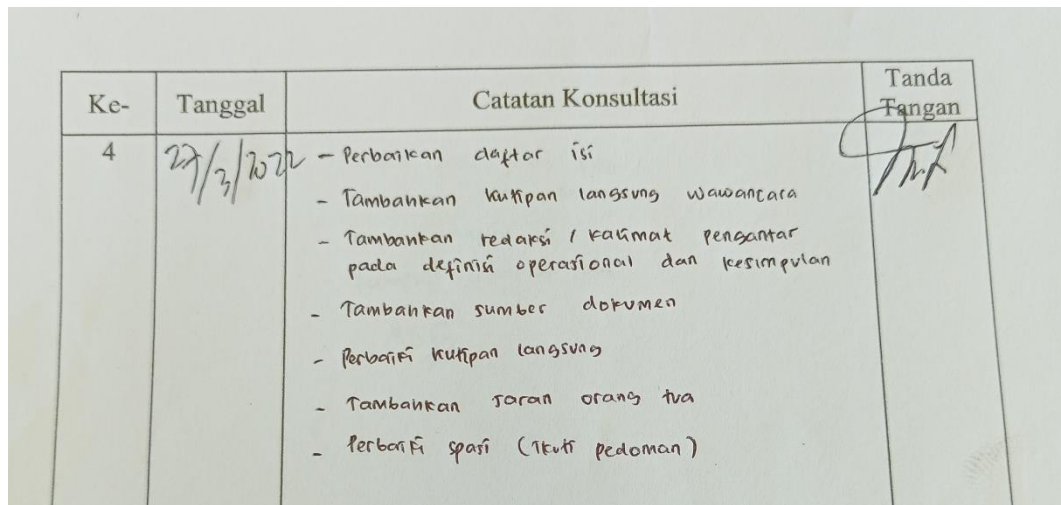 Ke- Tanggal Catatan Konsultasi Tanda Tangan
4 27/3/2022 - Perbaikan daftar isi
- Tambahkan kutipan langsung wawancara
- Tambahkan redaksi / kalimat pengantar
pada definisi operasional dan kesimpulan
- Tambahkan sumber dokumen
- Perbaiki kutipan langsung
- Tambahkan saran orang tua
- Perbaiki spasi (Ikuti pedoman)